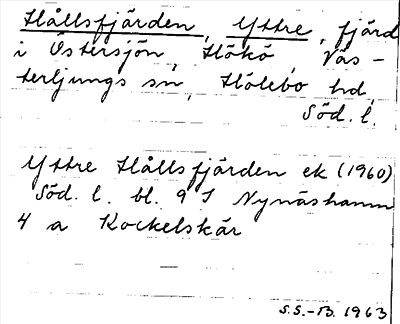 Hållsfjärden, Yttre, fjärd
i Östersjön, Hökö, Väs-
terljungs sn, Hölebo hd,
Söd. l.
Yttre Hållsfjärden ek (1960)
Söd. l. bl. 9 I Nynäshamn
4 a Kockelskär
S.S.-B. 1963